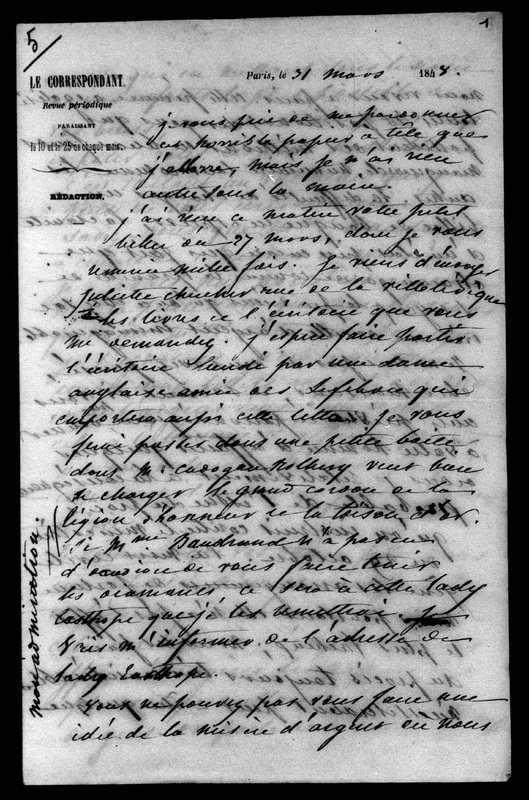 5
1
LE CORRESPONDANT.
Revue périodique
PARAISSANT
le 10 et le 25 de chaque mois.
RÉDACTION.
Paris, le 31 mars 1848.
je vous prie de me pardonner
cet horrible papier à tête que
j'abhorre, mais je n'ai rien
autre sous la main.
j'ai reçu ce matin votre petit
billet du 27 mars, dont je vous
remercie mille fois. Je viens d'envoyer
juliette chercher rue de la ville l'évêque
les livres et l'écritoire que vous
me demandez. j'espère faire partir
l'écritoire lundi par une dame
anglaise amie des Lefebvre qui
emportera aussi cette lettre. Je vous
ferai passer dans une petite boîte
dont M. Cadogan Rothery veut bien
se charger le grand cordon de la
légion d'honneur et la toison d'or.
Si Mme Baudrand n'a pas eu
d'occasion de vous faire tenir
les ornements ce sera à cette lady
Easthope que je les remettrai. Je
vais m'informer de l'adresse de
lady Easthope.
Vous ne pouvez pas vous faire une
idée de la misère d'argent où nous
mon admiration.